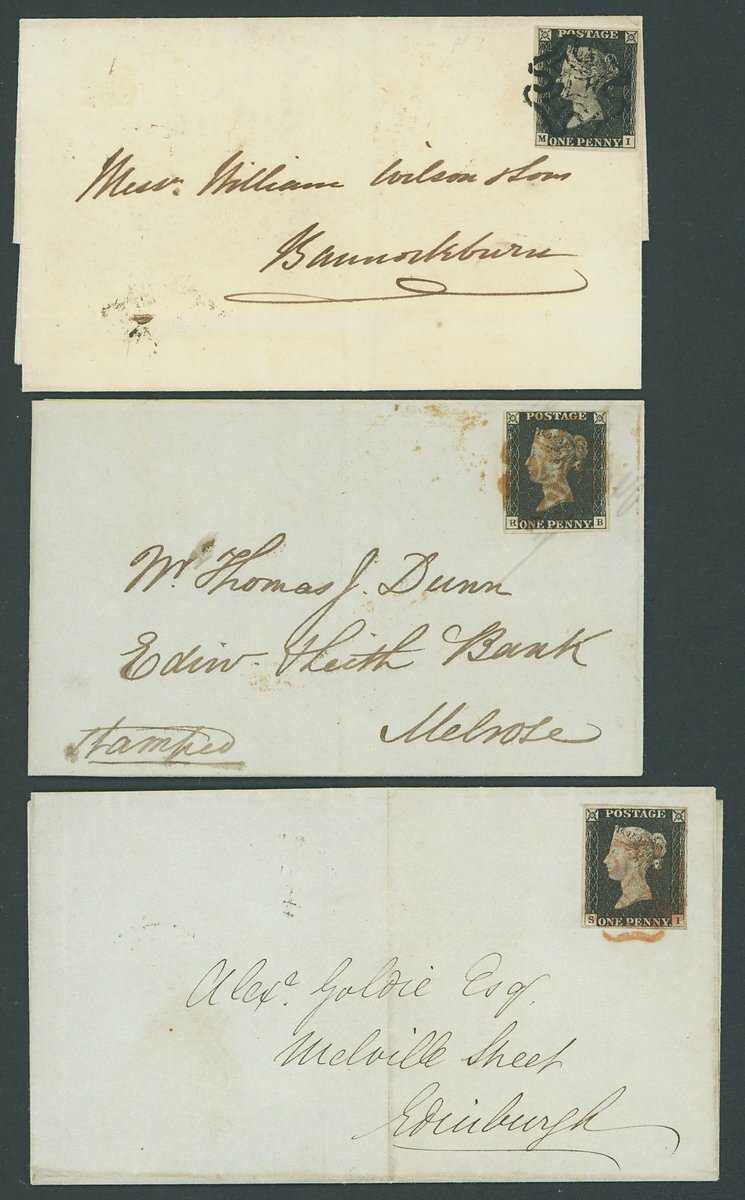 POSTAGE
M ONE PENNY I
Messrs. William Wilson & Sons
Bannockburn
POSTAGE
R ONE PENNY B
Mr. Thomas J. Dunn
Edinr. & Leith Bank
Melrose
Stamped
POSTAGE
S ONE PENNY I
Alexr. Goldie Esqr.
Melville Street
Edinburgh